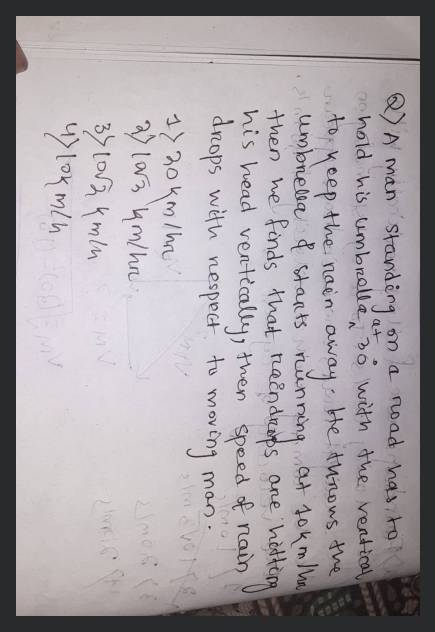 Q) A man standing on a road has to
hold his umbrella at 30° with the vertical
to keep the rain away. He throws the
umbrella & starts running at 10km/hr
then he finds that raindrops are hitting
his head vertically, then speed of rain
drops with respect to moving man.
1) 20 km/hr
2) 10√3 km/hr
3) 10√2 km/h
4) 10km/h